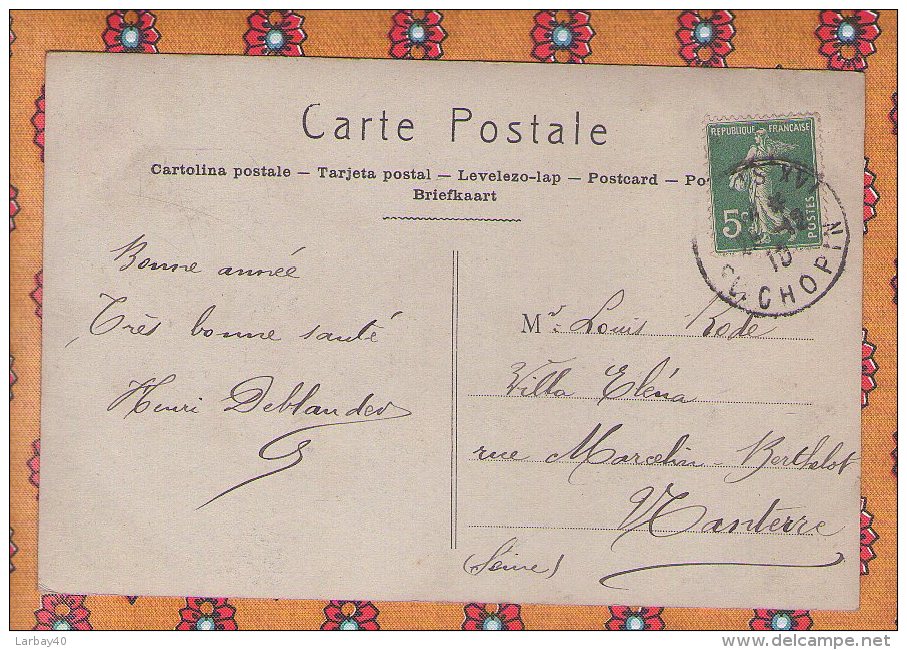 Carte Postale
Cartolina postale — Tarjeta postal — Levelezo-lap — Postcard — Po
Briefkaart
RÉPUBLIQUE FRANÇAISE
5c
POSTES
PARIS XVI
PL. CHOPIN
13
Bonne année
Très bonne santé
Henri Deblander
Mr. Louis Rode
Villa Eléna
rue Marcelin-Berthelot
Nanterre
(Seine)
Larbay40
www.delcampe.net